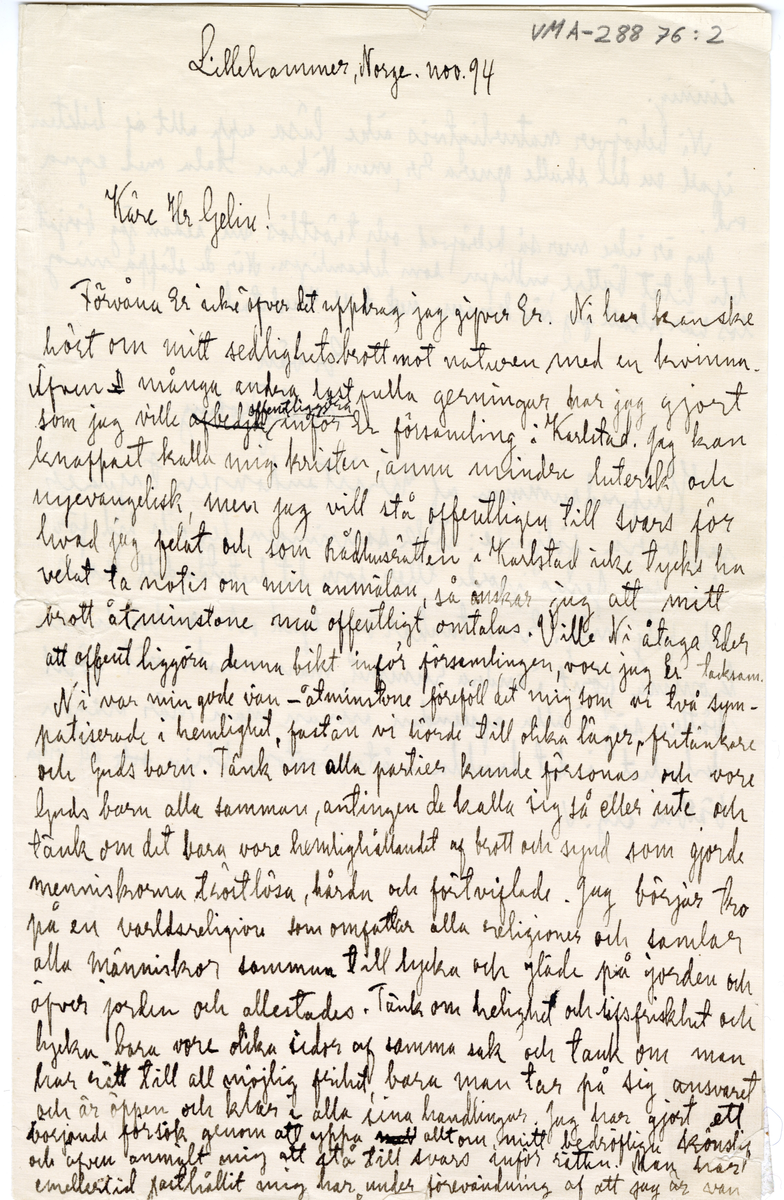 VMA-288 76:2
Lillehammer, Norge. nov. 94
Käre Hr Gelin!
Förvåna Er icke öfver det uppdrag jag gifver Er. Ni har kanske
hört om mitt sedlighetsbrott mot naturen med en kvinna.
Äfven många andra lastfulla gerningar har jag gjort
offentliggöra
som jag ville afbedja inför Er församling i Karlstad. Jag kan
knappast kalla mig kristen, ännu mindre lutersk och
nyevangelisk, men jag vill stå offentligen till svars för
hvad jag felat och som Rådhusrätten i Karlstad icke tycks ha
velat ta notis om min anmälan, så önskar jag att mitt
brott åtminstone må offentligt omtalas. Ville Ni åtaga Eder
att offentliggöra denna bikt inför församlingen, vore jag Er tacksam.
Ni var min gode vän – åtminstone föreföll det mig som vi två sym-
patiserade i hemlighet, fastän vi hörde till olika läger, fritänkare
och Guds barn. Tänk om alla partier kunde försonas och vore
Guds barn alla samman, antingen de kalla sig så eller inte och
tänk om det bara vore hemlighållandet af brott och synd som gjorde
menniskorna tröstlösa, hårda och förtviflade. Jag börjar tro
på en världsreligion som omfattar alla religioner och samlar
alla människor samman till lycka och glädje på jorden och
öfver jorden och allestädes. Tänk om helighet och lifsfriskhet och
lycka bara vore olika sidor af samma sak och tänk om man
har rätt till all möjlig frihet, bara man tar på sig ansvaret
och är öppen och klar i alla sina handlingar. Jag har gjort ett
börjande försök genom att yppa allt om mitt bedröfliga könslif
och äfven anmält mig att stå till svars inför rätten. Man har
emellertid qvarhållit mig här under förevändning af att jag är van